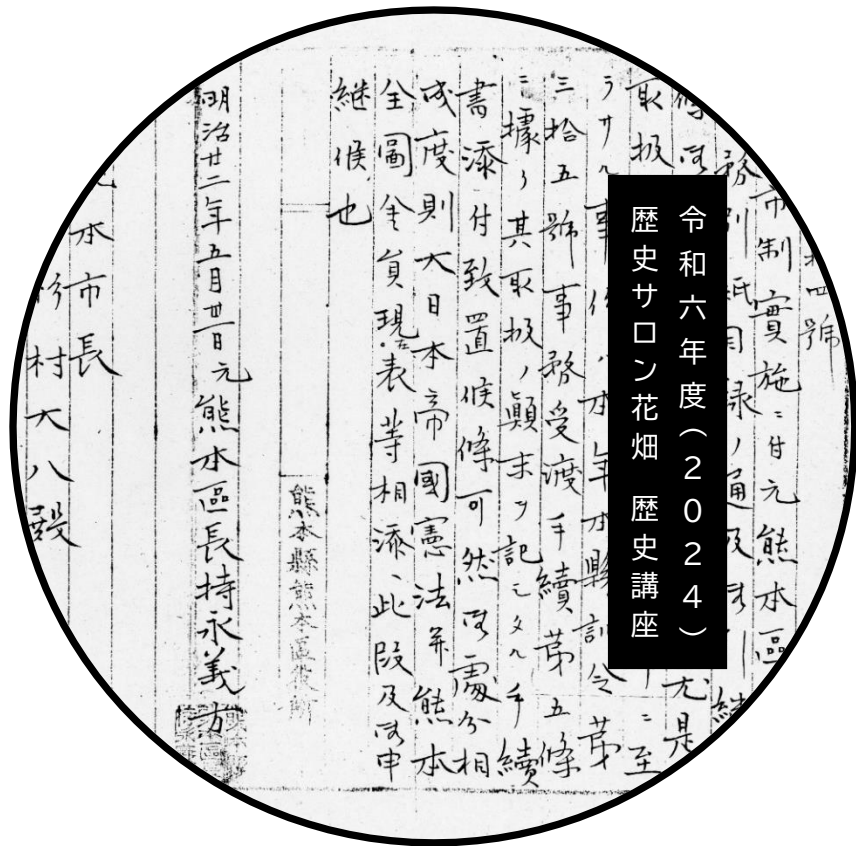 令和六年度(2024)
歴史サロン花畑 歴史講座
號
市制實施ニ付元熊本區
取扱
尤是
ニ至
ラサル事件ハ本年本縣訓令第
三拾五號事務受渡手續第五條
ニ據リ其取扱ノ顛末ヲ記シタル手續
書添付致置候條可然御處分相
成度則大日本帝國憲法并熊本
全圖金員現表等相添、此段及御申
継候也
熊本縣熊本區役所
明治廿二年五月廿一日元熊本區長持永義方
本市長
杉村大八殿